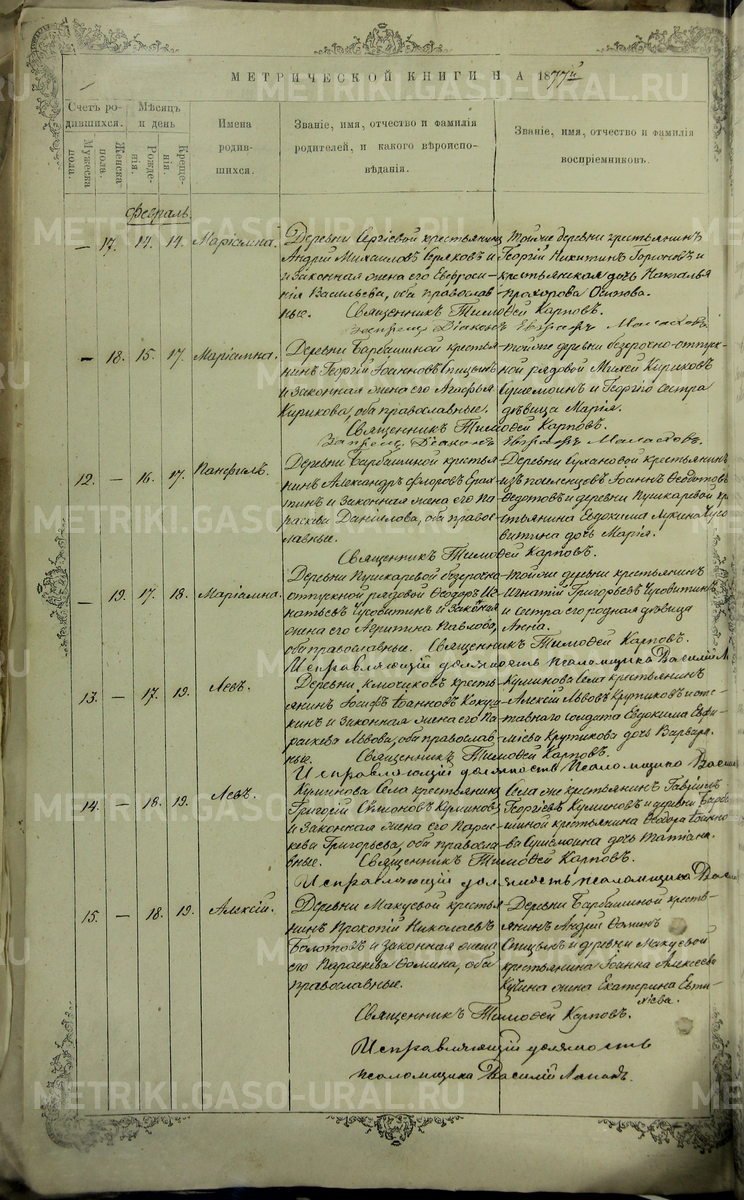 МЕТРИЧЕСКОЙ КНИГИ НА 1877й
Счетъ ро-
дившихся.
Мужеска
пола.
Женска
пола.
Мѣсяцъ
и день
Рожде-
нія.
Креще-
нія.
Имена
родив-
шихся.
Званіе, имя, отчество и фамилія
родителей, и какого вѣроиспо-
вѣданія.
Званіе, имя, отчество и фамилія
воспріемниковъ.
Февраль.
— 17. 14. 14. Маріамна.
Деревни Сергіевой крестьянинъ
Андрей Михаиловъ и
и законная жена его Евфроси-
нія Васильева, оба православ
ные.
Тойже деревни крестьянинъ
Георгій Никитинъ и
крестьянская дочь Наталья
Прохорова Осипова.
Священникъ Тимофей Карповъ.
Діаконъ
— 18. 15. 17. Маріамна.
Деревни Барбашиной крестья-
нинъ Георгій Іоанновъ Спицынъ
и законная жена его Агафья
Кирикова, оба православные.
тойже деревни безсрочно-отпуск-
ной рядовой Кириковъ
и Георгія сестра
дѣвица Марія.
Священникъ Тимофей Карповъ.
Діаконъ
12. — 16. 17. Панфилъ.
Деревни Барбашиной крестья-
нинъ Александръ Флоровъ
и законная жена его Па-
раскева Даниилова, оба правос-
лавные.
Деревни Сухановой крестьянинъ
изъ поселенцевъ Іоаннъ Ѳедотовъ
и деревни Пушкаревой кр
стьянина Евдокима Лукина
дочь Марія.
Священникъ Тимофей Карповъ.
— 19. 17. 18. Маріамна.
Деревни Пушкаревой безсрочно-
отпускной рядовой Ѳеодоръ Иг
натьевъ Чусовитинъ и законая
жена его Агрипина Павлова,
оба православные.
тойже деревни крестьянинъ
Игнатій Григорьевъ Чусовитинъ
и сестра его родная дѣвица
Анна.
Священникъ Тимофей Карповъ.
Исправляющій должность псаломщика Василій
13. — 17. 19. Левъ.
Деревни Ключиковъ кресть-
янинъ Іосифъ Іоанновъ Кокш
кинъ и законная жена его Па-
раскева Львова, оба православ
ные.
Куминова Села крестьянинъ
Алексій Львовъ Крутиковъ и отс-
тавнаго солдата Евдокима Евфи-
міева Крутикова дочь Варвара.
Священникъ Тимофей Карповъ.
Исправляющій должность псаломщика
14. — 18. 19. Левъ.
Куминова Села крестьянинъ
Григорій Сѵмеоновъ Куминовъ
и законная жена его Парас-
кева Григорьева, оба правосла-
вные.
Села же крестьянинъ Гавріилъ
Георгіевъ Куминовъ и деревни Барба
шиной крестьянина Ѳеодора Іоанно-
ва дочь Татіана.
Священникъ Тимофей Карповъ.
Исправляющій должность псаломщика
15. — 18. 19. Алексій.
Деревни Макуевой крестья-
нинъ Прокопій Николаевъ
Болотовъ и законная жена
его Параскева Ѳомина, оба
православные.
Деревни Барбашиной кресть-
янинъ Андрей Ѳоминъ
Спицынъ и деревни Макуевой
крестьянина Іоанна Алексеева
Кузина жена Екатерина Евти-
хіева.
Священникъ Тимофей Карповъ.
Исправляющій должность
псаломщика Василій
METRIKI.GASO-URAL.RU